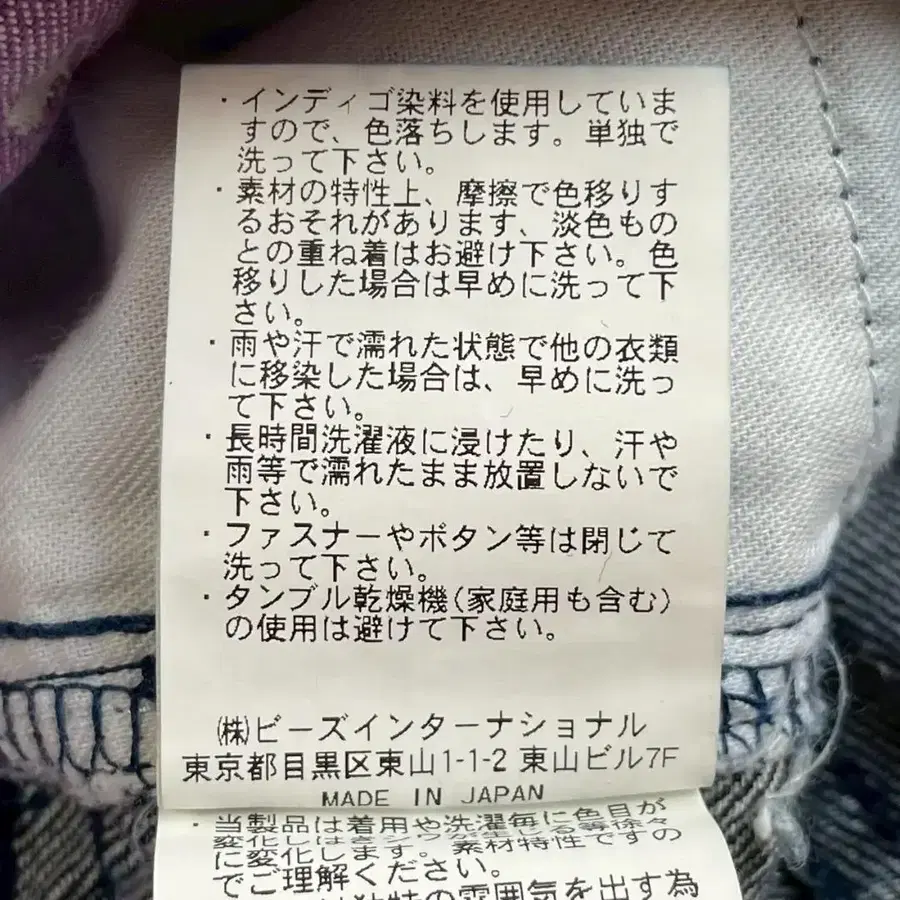 ・インディゴ染料を使用していま
すので、色落ちします。単独で
洗って下さい。
・素材の特性上、摩擦で色移りす
るおそれがあります、淡色もの
との重ね着はお避け下さい。色
移りした場合は早めに洗って下
さい。
・雨や汗で濡れた状態で他の衣類
に移染した場合は、早めに洗っ
て下さい。
・長時間洗濯液に浸けたり、汗や
雨等で濡れたまま放置しないで
下さい。
・ファスナーやボタン等は閉じて
洗って下さい。
・タンブル乾燥機(家庭用も含む)
の使用は避けて下さい。
㈱ビーズインターナショナル
東京都目黒区東山1-1-2 東山ビル7F
MADE IN JAPAN
・当製品は着用や洗濯毎に色目が
に変化します。素材特性ですの
でご理解ください。
独特の雰囲気を出す為